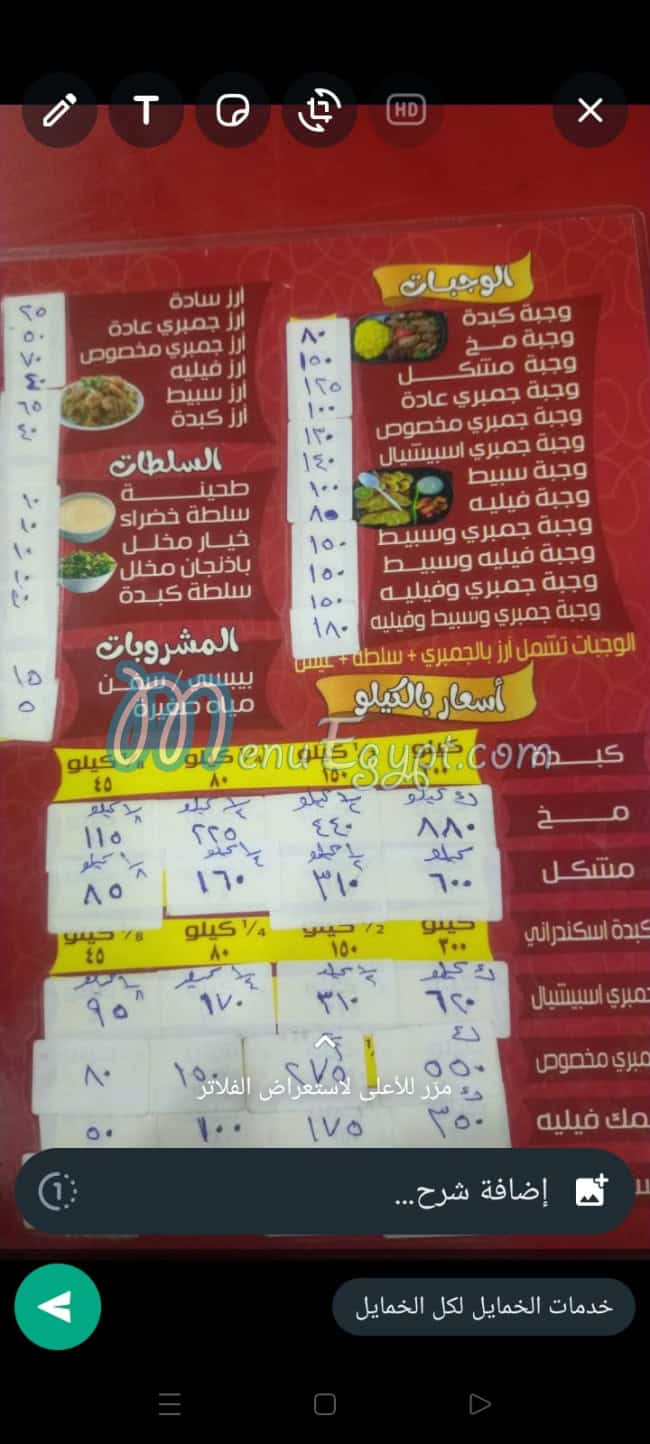 HD
الوجبات
وجبة كبدة ٨٠
وجبة مخ ١٥٠
وجبة مشكل ١٢٥
وجبة جمبري عادة ١٠٠
وجبة جمبري مخصوص ١٣٠
وجبة جمبري اسبيشيال ١٤٠
وجبة سبيط ١٠٠
وجبة فيليه ٨٠
وجبة جمبري وسبيط ١٥٠
وجبة فيليه وسبيط ١٥٠
وجبة جمبري وفيليه ١٥٠
وجبة جمبري وسبيط وفيليه ١٨٠
الوجبات تشمل أرز بالجمبري + سلطة + عيش
أرز سادة ٢٥
أرز جمبري عادة ٥٠
أرز جمبري مخصوص ٧٠
أرز فيليه ٤٠
أرز سبيط ٦٥
أرز كبدة ٤٠
السلطات
طحينة ١٠
سلطة خضراء ١٠
خيار مخلل ١٠
باذنجان مخلل
سلطة كبدة
المشروبات
بيبسي ١٥
مياه صغيرة ٥
MenuEgypt.com
أسعار بالكيلو
كيلو ١/٢ كيلو كيلو كيلو
كبدة ١٥٠ ٨٠ ٤٥
ك كيلو ١/٢ كيلو ١/٤ كيلو ١/٨ كيلو
مخ ٨٨٠ ٤٤٠ ٢٢٥ ١١٥
كيلو ١/٢ كيلو ١/٤ كيلو ١/٨ كيلو
مشكل ٦٠٠ ٣١٠ ١٦٠ ٨٥
كيلو ١/٢ كيلو ١/٤ كيلو ١/٨ كيلو
كبدة اسكندراني ٣٠٠ ١٥٠ ٨٠ ٤٥
كيلو ١/٢ كيلو ١/٤ كيلو ١/٨ كيلو
جمبري اسبيشيال ٦٢٠ ٣١٠ ١٧٠ ٩٥
مبري مخصوص ٥٥٠ ٢٧٥ ١٥٠ ٨٠
مك فيليه ٣٥٠ ١٧٥ ١٠٠ ٥٠
مرّر للأعلى لاستعراض الفلاتر
إضافة شرح...
خدمات الخمايل لكل الخمايل